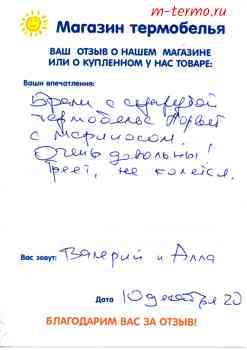 m-termo.ru
Магазин термобелья
ВАШ ОТЗЫВ О НАШЕМ МАГАЗИНЕ
ИЛИ О КУПЛЕННОМ У НАС ТОВАРЕ:
Ваши впечатления:
Брали с супругой
термобелье Норвег
с мериносом.
Очень довольны!
Греет, не колется.
Вас зовут: Валерий и Алла
Дата 10 декабря 20
БЛАГОДАРИМ ВАС ЗА ОТЗЫВ!